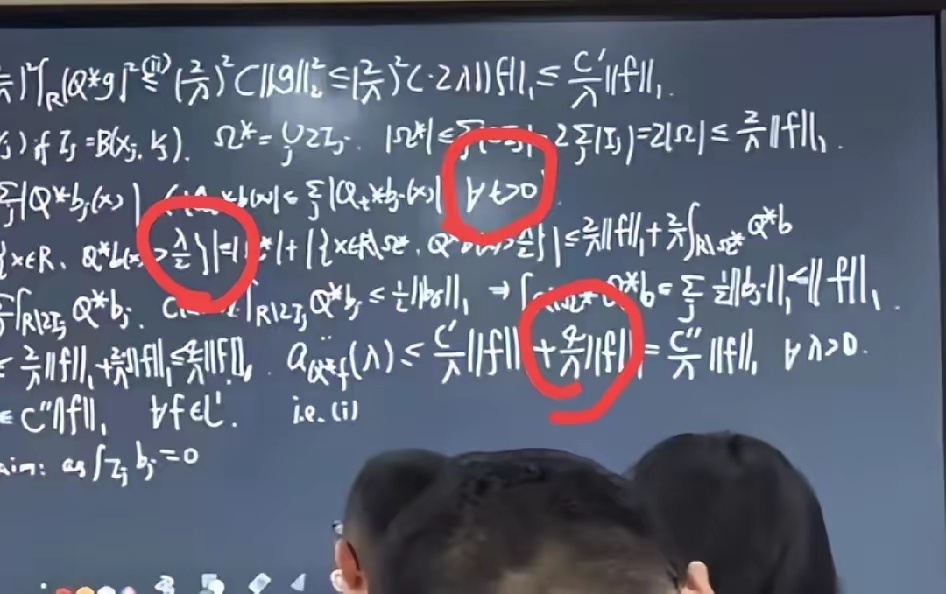 |²∫_R |Q*g|² ≤^{(ii)} (2/λ)² C||g||₂² ≤ (2/λ)² C·2λ||f||₁ ≤ C'/λ ||f||₁.
if I_j = B(x_j, r_j). Ω* = ∪_j 2I_j. |Ω*| ≤ 2Σ_j|I_j| = 2|Ω| ≤ 2/λ ||f||₁.
Σ_j |Q*b_j(x)| ≤ Σ_j |Q_t*b_j(x)| ∀ t>0
{x∈R, Q*b(x) > λ/2}| ≤ |Ω*| + |{x∈R\Ω*, Q*b(x) > λ/2}| ≤ 2/λ ||f||₁ + 2/λ ∫_{R\Ω*} Q*b
∫_{R\2I_j} Q*b_j. ∫_{R\2I_j} Q*b_j ≤ ½||b_j||₁ ⇒ Q*b = Σ_j ½||b_j||₁ ≤ ||f||₁.
≤ 2/λ ||f||₁ + 2/λ ||f||₁ ≤ 4/λ ||f||₁. a_{Q*f}(λ) ≤ C'/λ ||f|| + 4/λ ||f|| = C''/λ ||f||₁ ∀ λ>0.
≤ C''||f||₁ ∀f∈L¹. i.e. (i)
as ∫_{I_j} b_j = 0